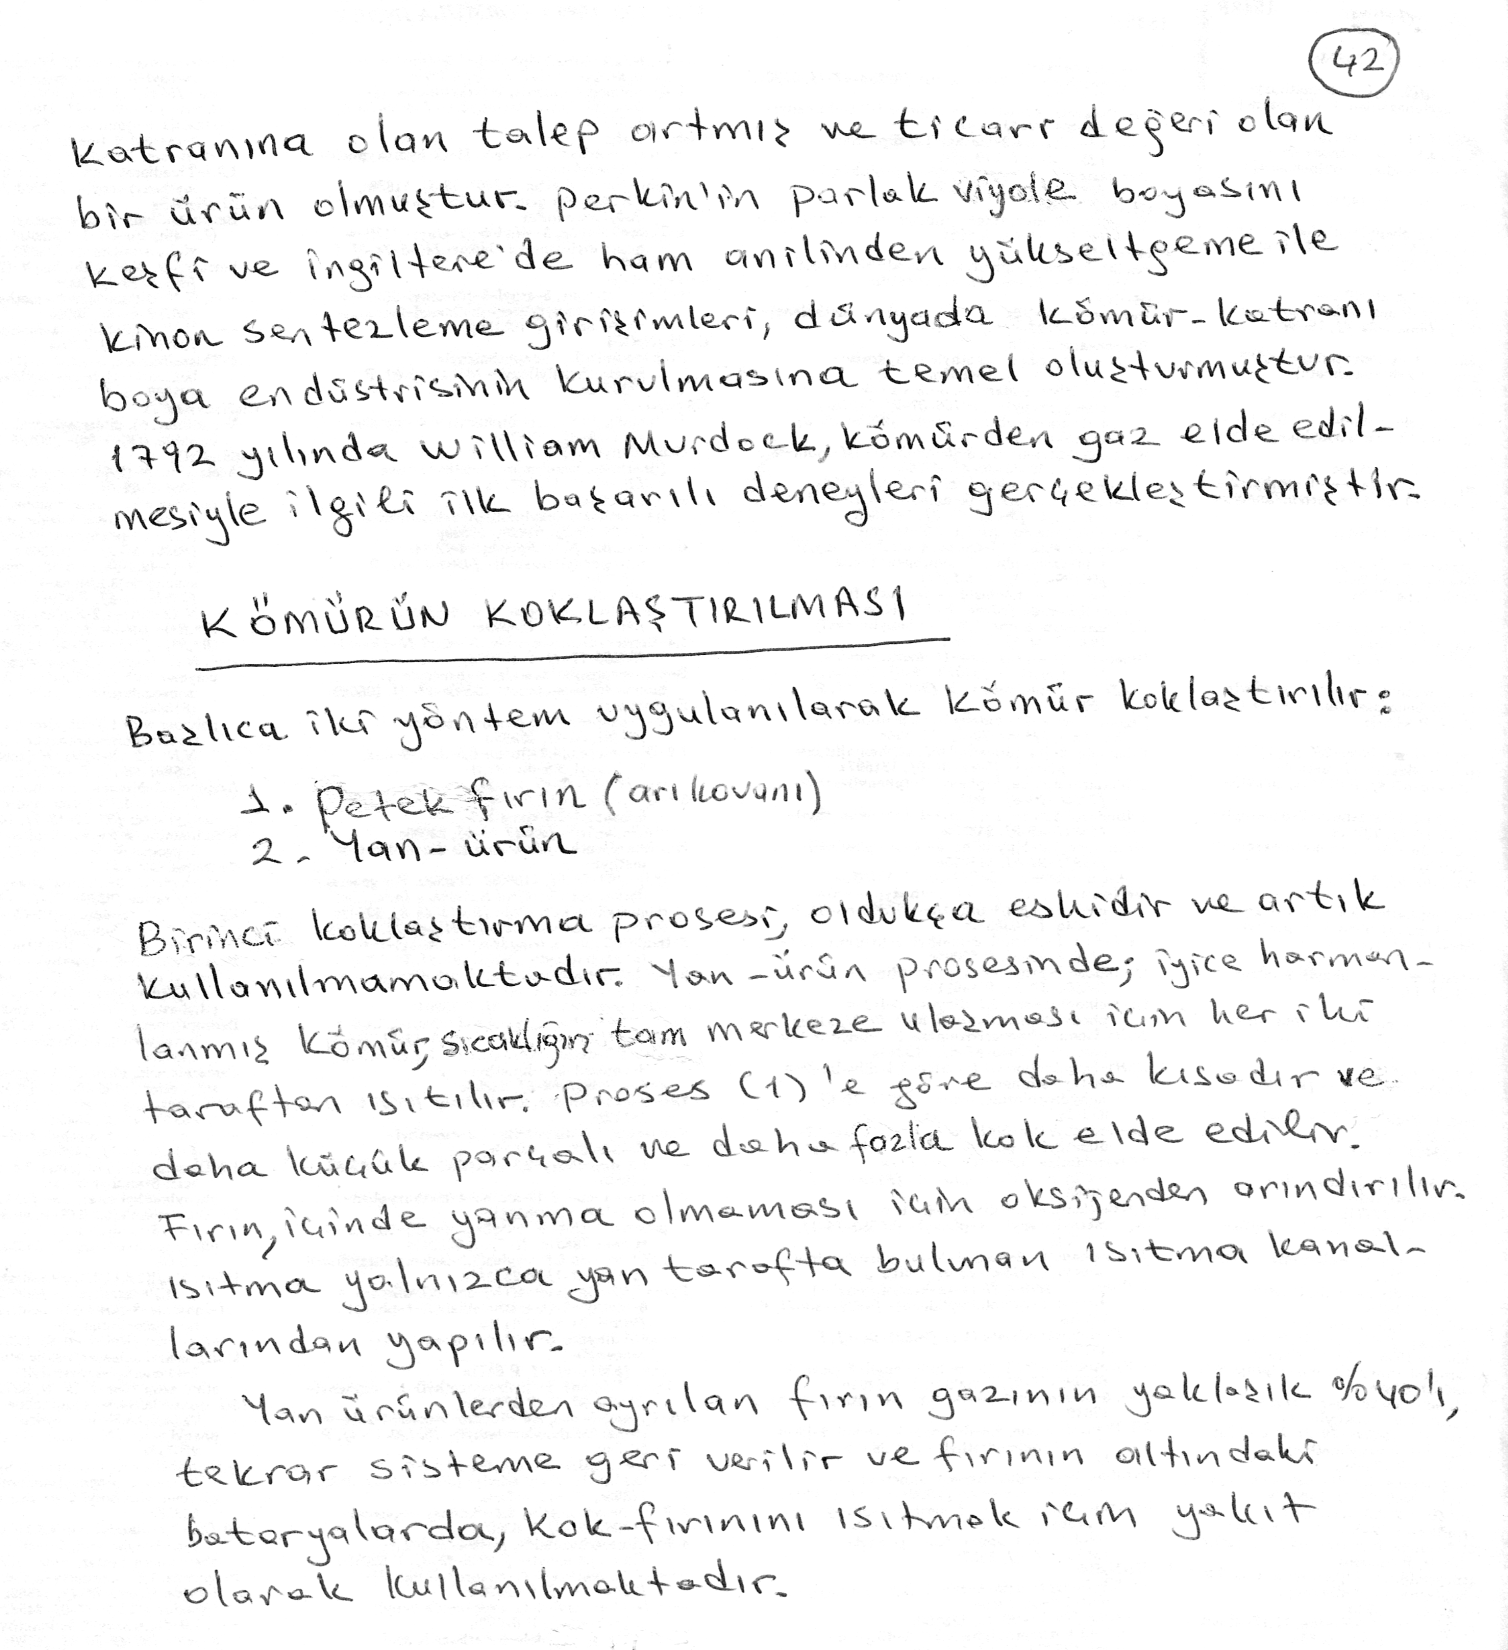 42
katranına olan talep artmış ve ticari değeri olan
bir ürün olmuştur. Perkin'in parlak viyole boyasını
keşfi ve İngiltere'de ham anilinden yükseltgeme ile
kinon sentezleme girişimleri, dünyada kömür-katranı
boya endüstrisinin kurulmasına temel oluşturmuştur.
1792 yılında William Murdock, kömürden gaz elde edil-
mesiyle ilgili ilk başarılı deneyleri gerçekleştirmiştir.
KÖMÜRÜN KOKLAŞTIRILMASI
Başlıca iki yöntem uygulanılarak kömür koklaştırılır:
1. Petek fırın (arı kovanı)
2. Yan-ürün
Birinci koklaştırma prosesi, oldukça eskidir ve artık
kullanılmamaktadır. Yan-ürün prosesinde; iyice harman-
lanmış kömür, sıcaklığın tam merkeze ulaşması için her iki
taraftan ısıtılır. Proses (1)'e göre daha kısadır ve
daha küçük parçalı ve daha fazla kok elde edilir.
Fırın, içinde yanma olmaması için oksijenden arındırılır.
Isıtma yalnızca yan tarafta bulunan ısıtma kanal-
larından yapılır.
Yan ürünlerden ayrılan fırın gazının yaklaşık %40'ı,
tekrar sisteme geri verilir ve fırının altındaki
bataryalarda, kok-fırınını ısıtmak için yakıt
olarak kullanılmaktadır.